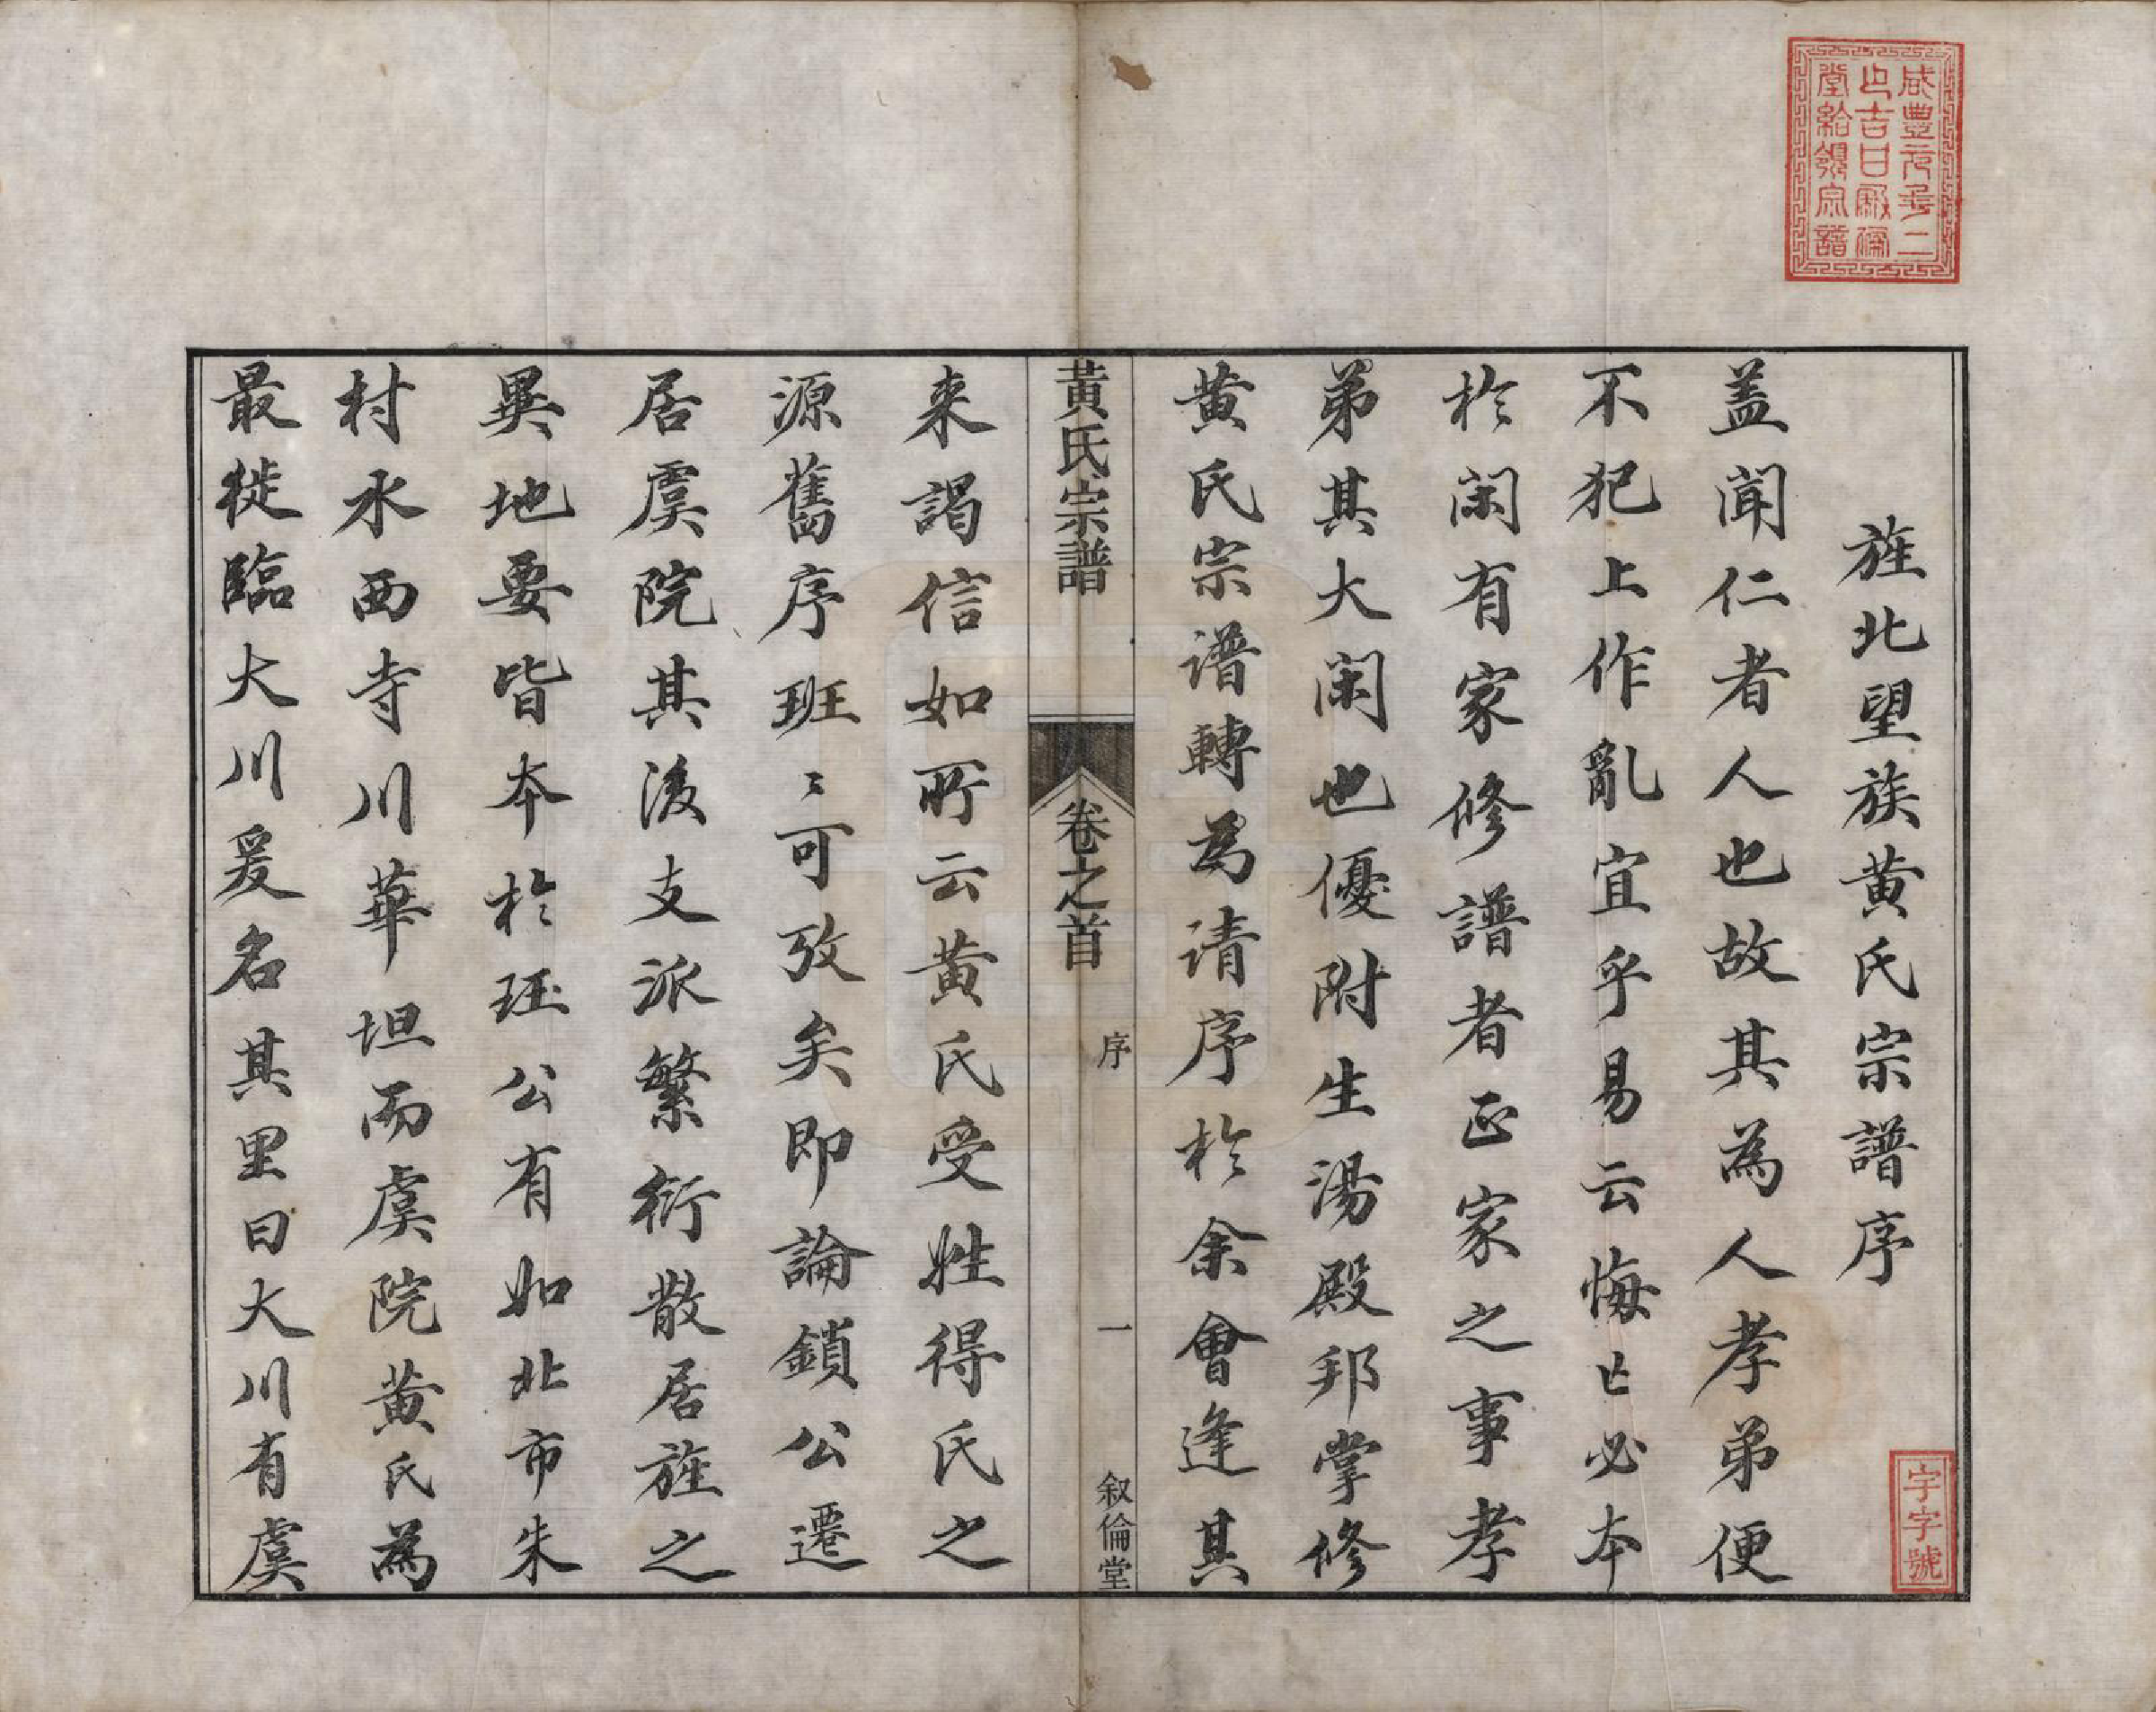 旌北望族黄氏宗譜序
盖聞仁者人也故其為人孝弟便
不犯上作亂宜乎易云悔亡必本
於閑有家修譜者正家之事孝
弟其大閑也優附生湯殿邦掌修
黄氏宗谱轉為请序於余會逢其
黃氏宗譜
卷之首
序
一
叙倫堂
来謁信如所云黄氏受姓得氏之
源舊序班〻可攷矣即論鎖公遷
居虞院其後支派繁衍散居旌之
異地要皆本於珏公有如北市朱
村水西寺川華坦而虞院黄氏為
最徙臨大川爰名其里曰大川有虞
咸豐元年二
吉日敘倫
堂給領宗譜
字字號